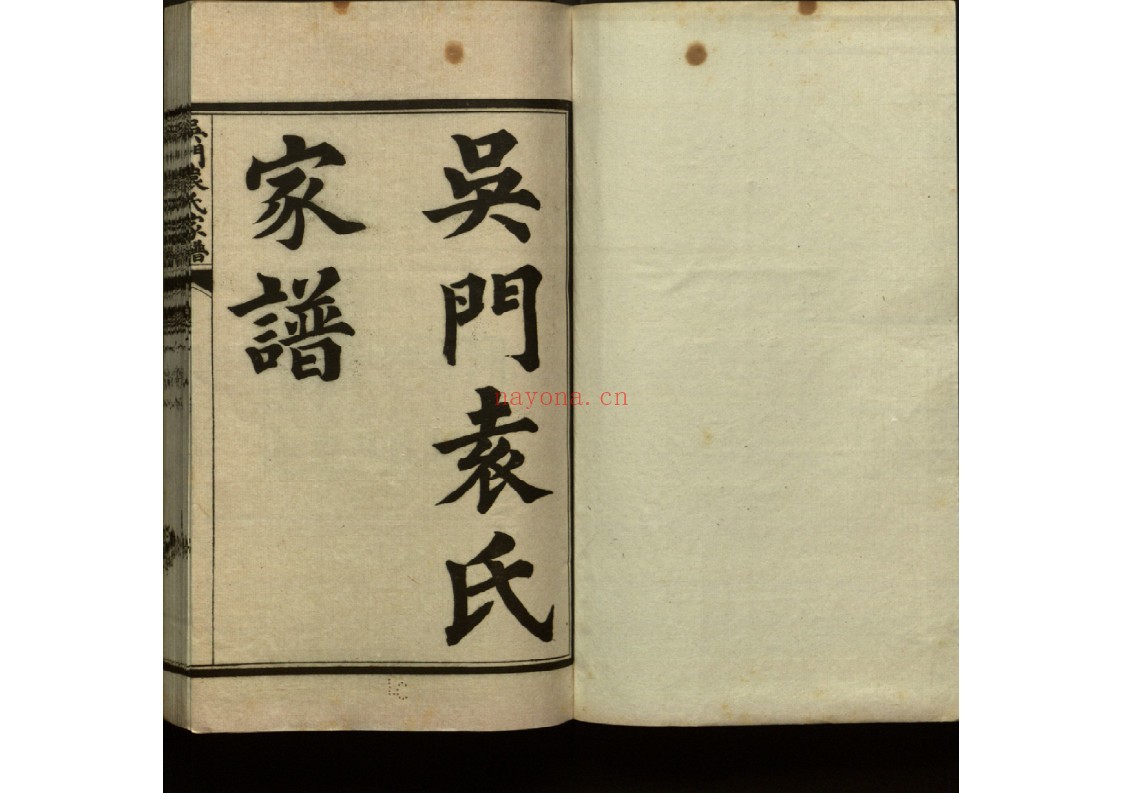 吳門袁氏
家譜
吳門袁氏家譜
nayona.cn